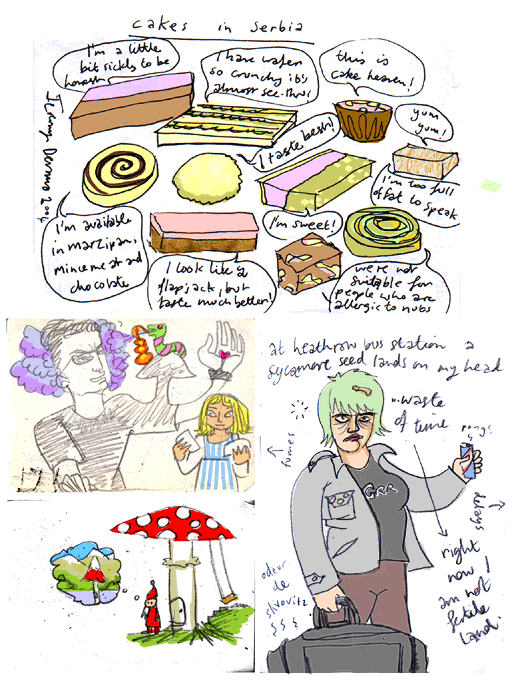 cakes in serbia
I'm a little
bit sickly to be
honest
I have wafer
so crunchy it's
almost see-thru!
this is
cake heaven!
yum
yum!
I taste best!
I'm too full
of fat to speak
I'm sweet!
I'm available
in marzipan,
mincemeat and
chocolate
I look like a
flapjack, but
taste much better!
we're not
suitable for
people who are
allergic to nuts
at heathrow bus station a
sycamore seed lands on my head
...waste
of time
fumes
GRR
delays
odeur
de
slivovitz
right
now I
am not
fertile
land.